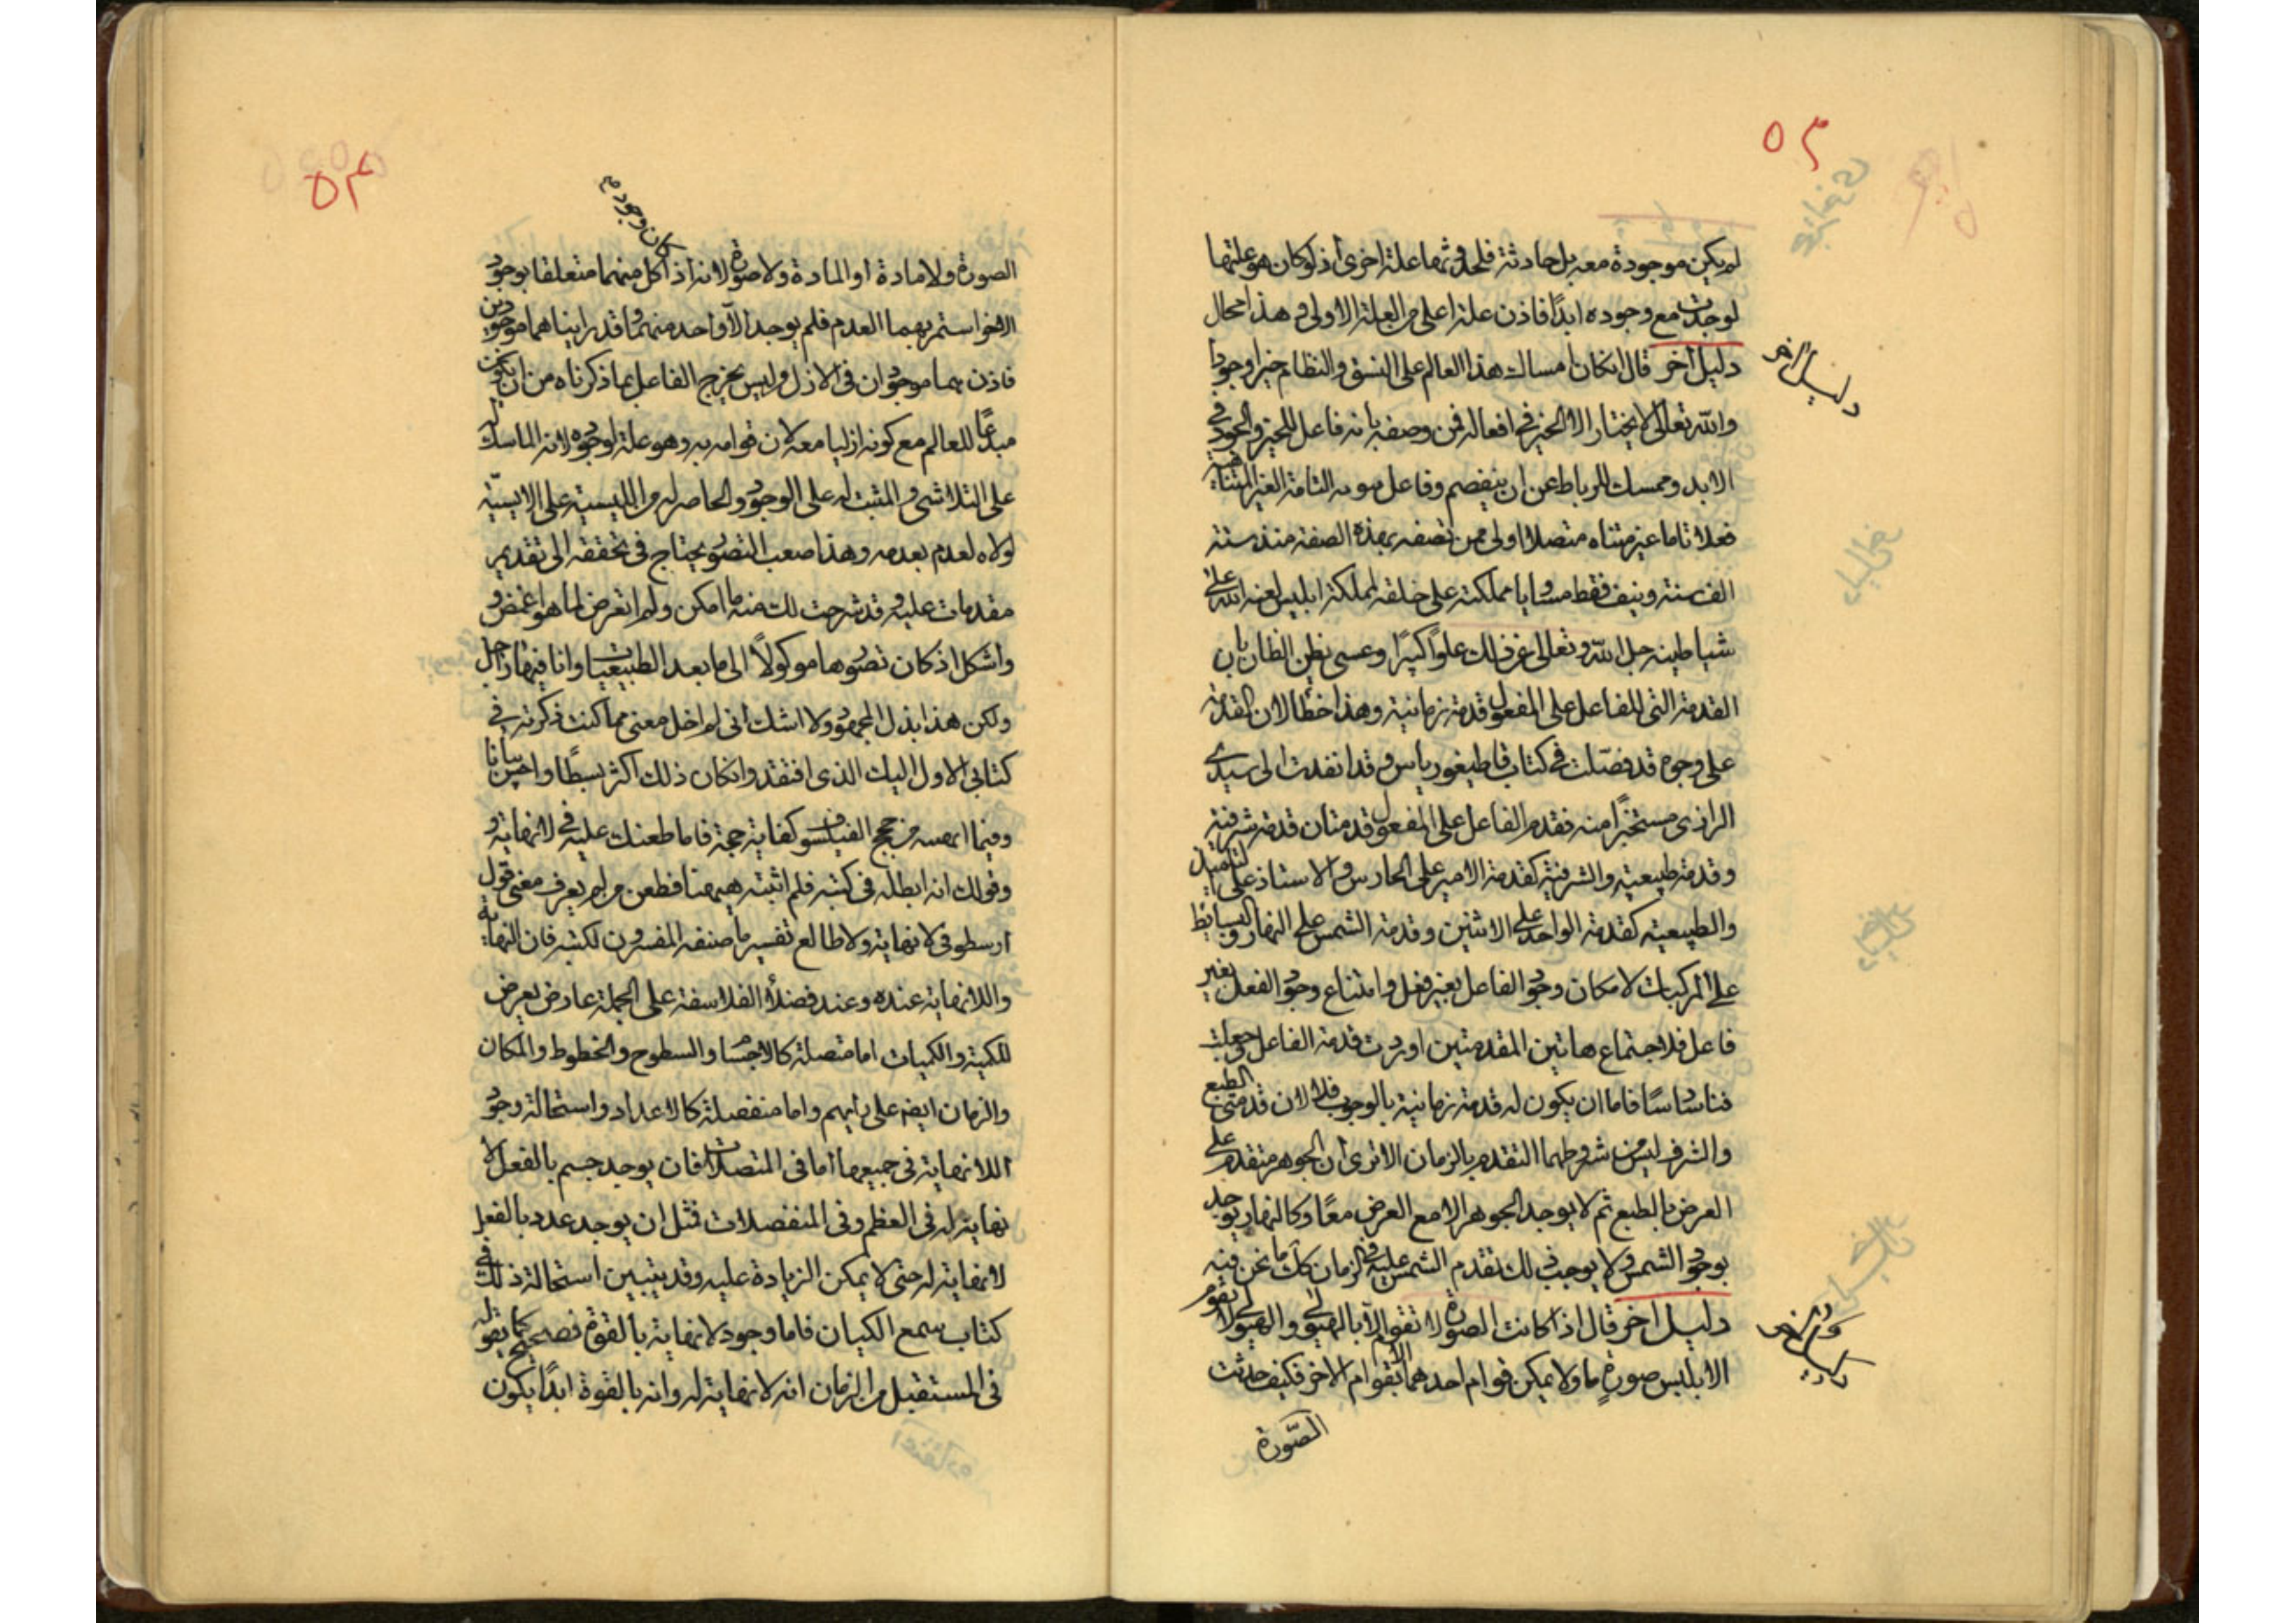 ٥٣
لم يكن موجودة معه بل حادثة فلحدوثها علة اخرى اذ لو كان هو علتها
لوجدت مع وجوده ابدًا فاذن علة اعلى من العلة الاولى وهذا محال
دليل اخر قال ان كان امساك هذا العالم على النسق والنظام خيرا وجودا
دليل اخر
والله تعالى لا يختار الا الخير في افعاله فمن وصفه بانه فاعل للخير والجود في
الابد وممسك للرباط عن ان ينفصم وفاعل التامة الغير المتناهية
فعلا تاما غير متناه متصلا اولى ممن تصفه بهذه الصفة منذ ستة
الف سنة ونيف فقط مساويا مملكته على خلقه لمملكة ابليس لعنه الله على
شياطينه جل الله وتعالى عن ذلك علوًا كبيرًا وعسى يظن الظان بان
القدمة التى للفاعل على المفعول قدمة زمانية وهذا خطا لان القدمة
على وجوه قد فصّلت في كتاب قاطيغورياس وقد انفدت الى سيدى
الرازى مستخبرًا منه فقدم الفاعل على المفعول قدمتان قدمة شرفية
وقدمة طبيعية والشرفية كقدمة الامير على الحارس والاستاذ على التلميذ
والطبيعية كقدمة الواحد على الاثنين وقدمة الشمس على النهار والبسايط
على المركبات لامكان وجود الفاعل بغير فعل وامتناع وجود الفعل بغير
فاعل فلاجتماع هاتين المقدمتين اوردت قدمة الفاعل وجعلت
فاما ان يكون له قدمة زمانية بالوجوب فلا لان قدمتى الطبع
والشرف ليس من شروطهما التقدم بالزمان الا ترى ان الجوهر متقدم على
العرض بالطبع ثم لا يوجد الجوهر الا مع العرض معًا وكالنهار يوجد
بوجود الشمس ولا يوجب ذلك تقدم الشمس عليه في الزمان كذلك ما نحن فيه
دليل اخر قال اذا كانت الصورة لا تقوم الا بالهيولى والهيولى لا تقوم
دليل اخر
الا بلبس صورة ما ولا يمكن قوام احدهما الا بقوام الاخر فكيف حدثت
الصّورة
٥٤
كان وجود
الصورة ولا مادة او المادة ولا صورة لانه اذا كل منهما متعلقا بوجود
الاخر استمر بهما العدم فلم يوجد الا واحد منهما وقد راينا هما موجودين
فاذن هما موجودان في الازل وليس يخرج الفاعل بما ذكرناه من ان يكون
مبدعًا للعالم مع كونه ازليا معه لان قوامه به وهو علة لوجوده لانه الماسك له
على التلاشى والمثبت له على الوجود والحاصر له من الليسية على الايسيّة
لولاه لعدم بعدمه وهذا صعب التصور يحتاج في تحققه الى تقديم
مقدمات عليه وقد شرحت لك منه ما امكن ولم اتعرض لما هو اغمض و
واشكل اذ كان تصورها موكولًا الى ما بعد الطبيعيات وانا فيها راجل
ولكن هذا بذل المجهود ولا اشك انى لم اخل معنى مما كنت ذكرته في
كتابى الاول اليك الذى افتقد وان كان ذلك اكثر بسطًا واحسن بيانا
وفيما من حجج الفيلسوف كفاية حجة فاما طعنك عليه في لانهاية و
وقولك انه ابطله في كتبه فلم اثبته ههنا فطعن من لم يعرف معنى قول
ارسطو في لا نهاية ولا طالع تفسير ما صنفه المفسرون لكتبه فان النهاية
واللانهاية عنده وعند فضلاء الفلاسفة على الجملة عارض يعرض
للكمية والكميات اما متصلة كالاجسام والسطوح والخطوط والمكان
والزمان ايضا على رايهم واما منفصلة كالاعداد واستحالة وجود
اللانهاية في جميعها اما في المتصلات فان يوجد جسم بالفعل لا
نهاية له في العظم وفي المنفصلات فمثل ان يوجد عدد بالفعل
لا نهاية له حتى لا يمكن الزيادة عليه وقد يتبين استحالة ذلك في
كتاب سمع الكيان فاما وجود لانهاية بالقوة فصحيح كما تقوله
في المستقبل من الزمان انه لا نهاية له وانه بالقوة ابدًا يكون